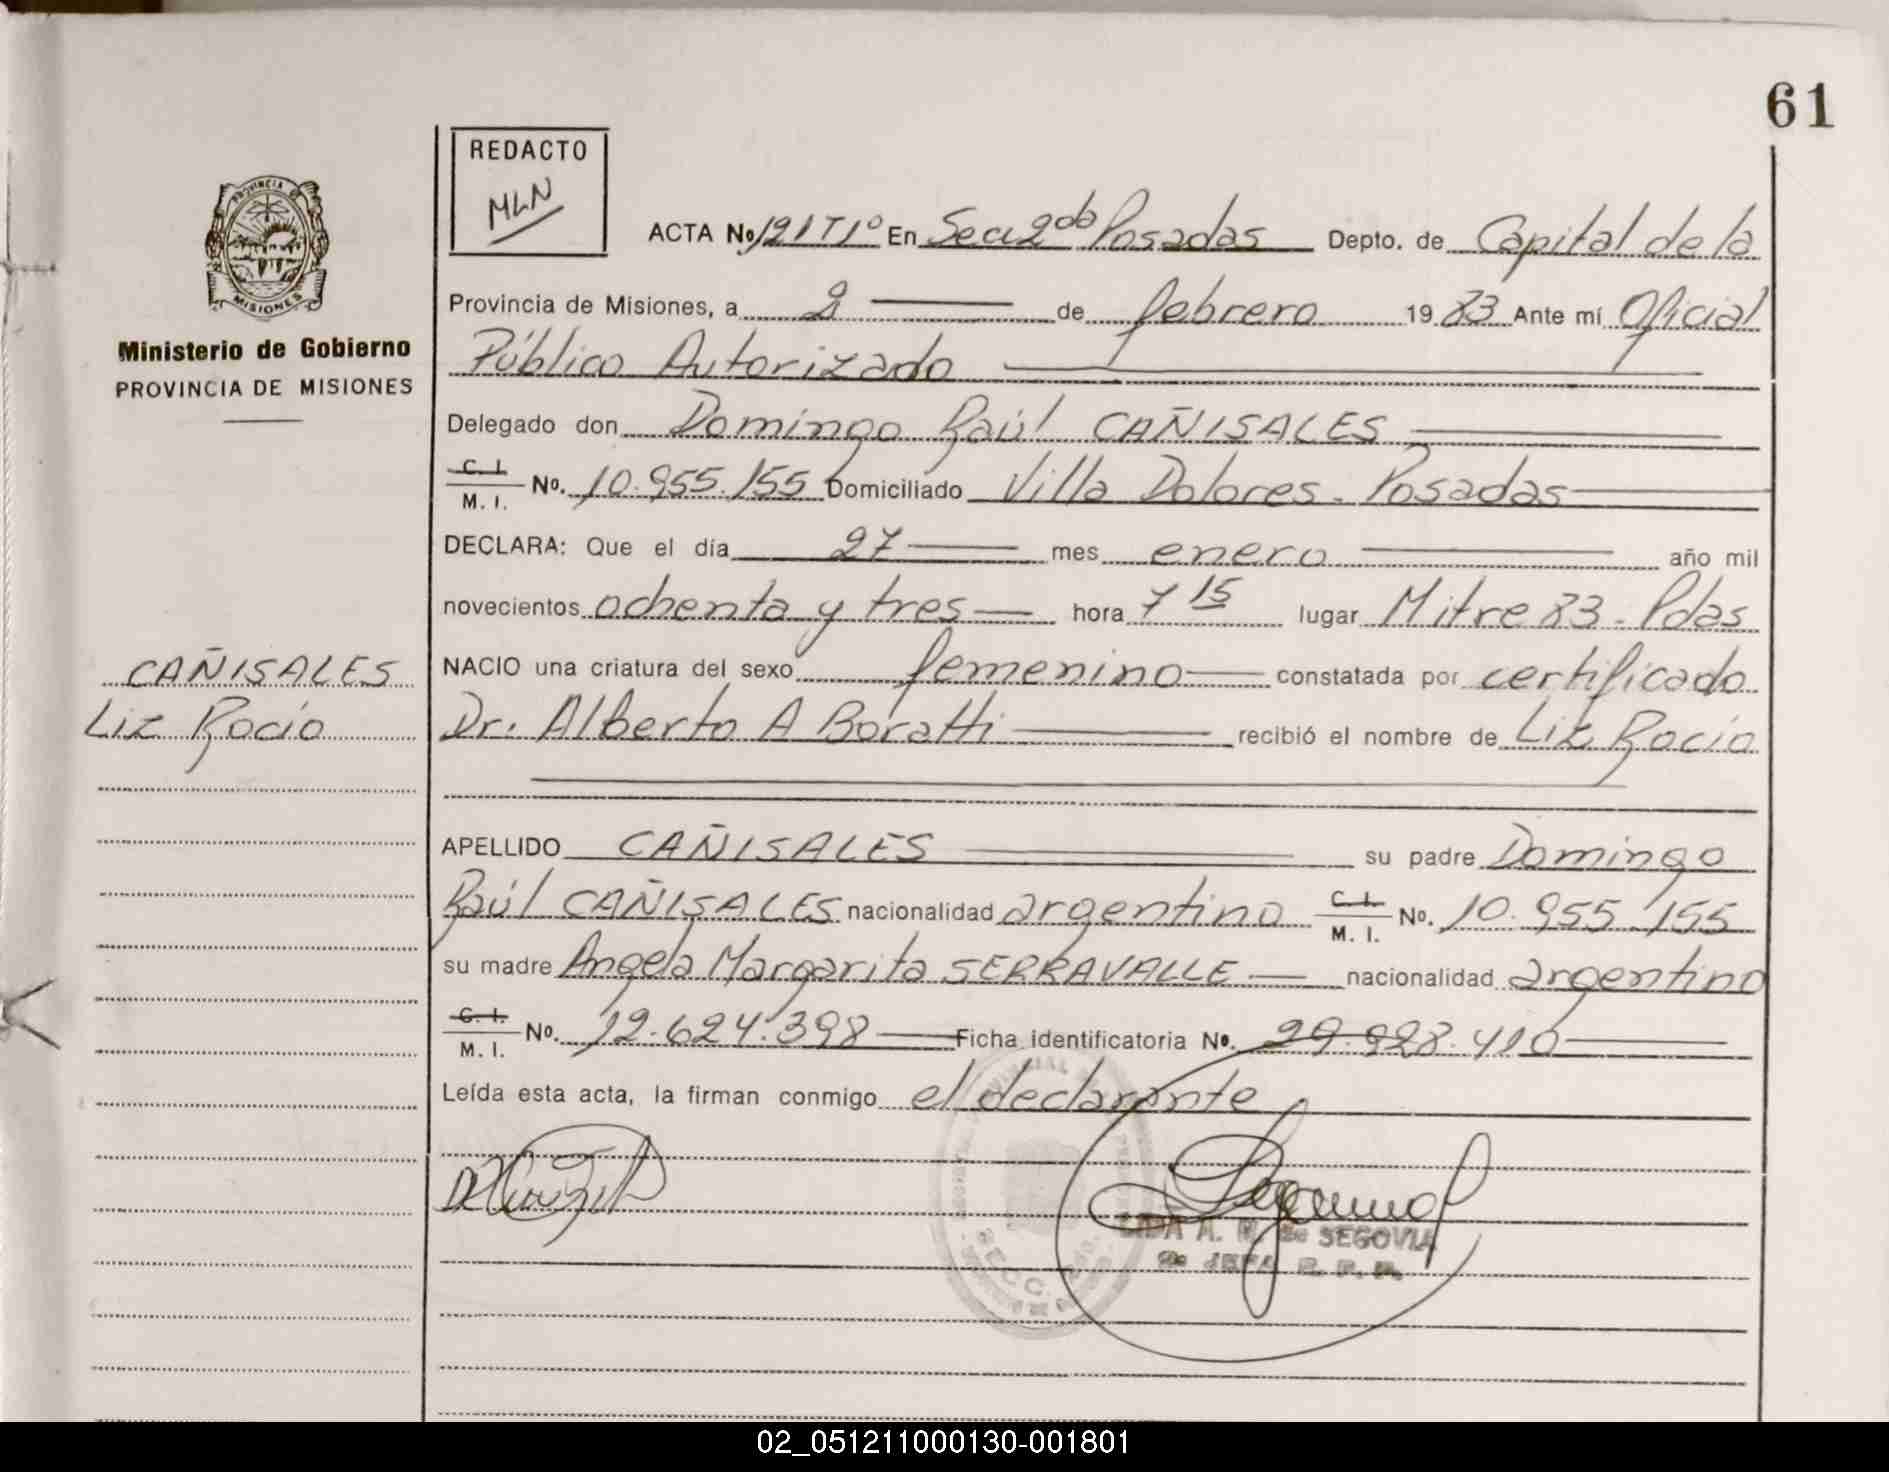 61
REDACTO
MLN
PROVINCIA DE
MISIONES
Ministerio de Gobierno
PROVINCIA DE MISIONES
ACTA No 121 T1º En Secc 2da Posadas Depto. de Capital de la
Provincia de Misiones, a 2 de febrero 1983 Ante mí Oficial
Público Autorizado
Delegado don Domingo Raúl CAÑISALES
C. I.
M. I. No. 10.955.155 Domiciliado Villa Dolores - Posadas
DECLARA: Que el día 27 mes enero año mil
novecientos ochenta y tres hora 7 15 lugar Mitre 83 - Pdas
CAÑISALES
Liz Rocío
NACIO una criatura del sexo femenino constatada por certificado
Dr. Alberto A Boratti recibió el nombre de Liz Rocío
APELLIDO CAÑISALES su padre Domingo
Raúl CAÑISALES nacionalidad argentino C. I.
M. I. No. 10.955.155
su madre Angela Margarita SERRAVALLE nacionalidad argentino
C. I.
M. I. No. 12.624.398 Ficha identificatoria No. 29.928.410
Leída esta acta, la firman conmigo el declarante
SECC. 2da.
LIDA A. de SEGOVIA
02_051211000130-001801